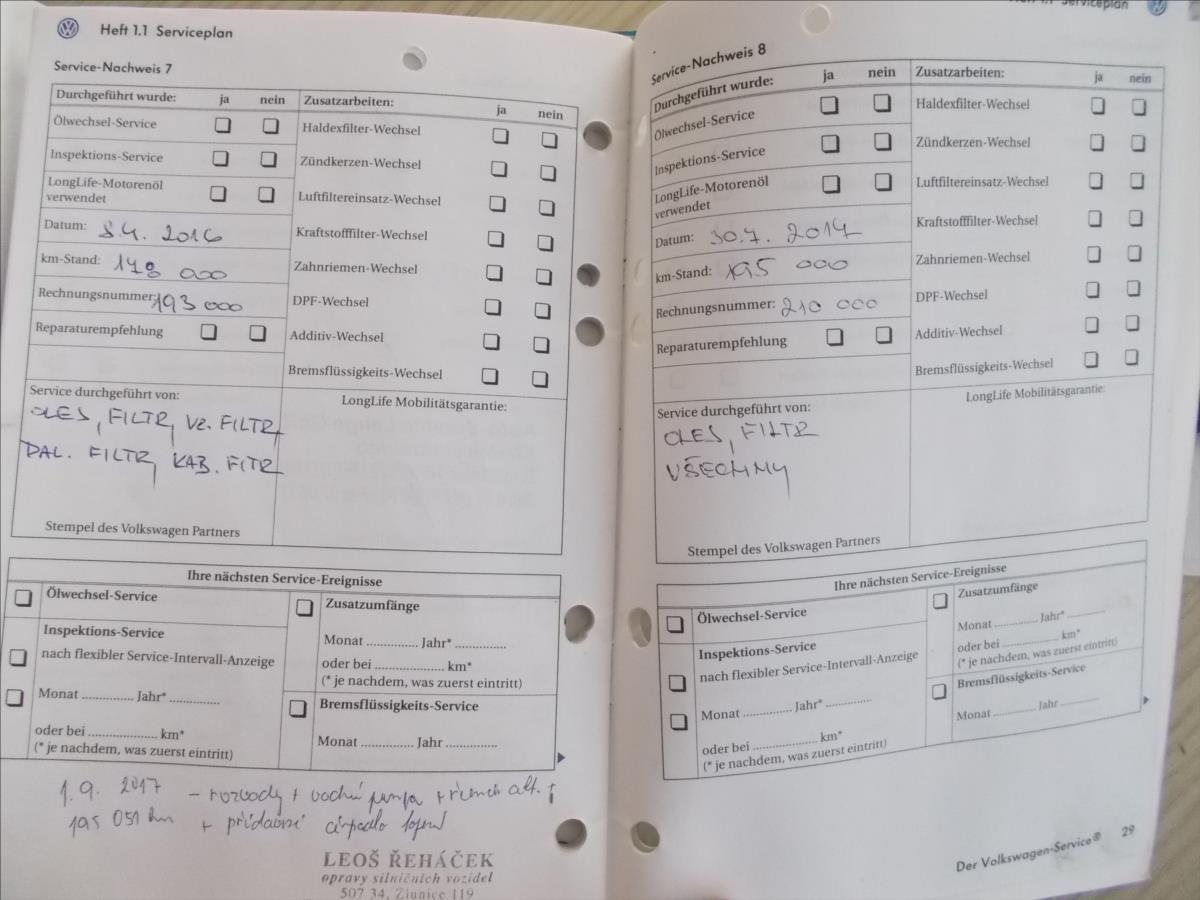 Heft 1.1 Serviceplan
Service-Nachweis 7
Durchgeführt wurde: ja nein Zusatzarbeiten: ja nein
Ölwechsel-Service
Haldexfilter-Wechsel
Inspektions-Service
Zündkerzen-Wechsel
LongLife-Motorenöl
verwendet
Luftfiltereinsatz-Wechsel
Datum: 8.4. 2016
Kraftstofffilter-Wechsel
km-Stand: 178 000
Zahnriemen-Wechsel
Rechnungsnummer: 193 000
DPF-Wechsel
Reparaturempfehlung
Additiv-Wechsel
Bremsflüssigkeits-Wechsel
Service durchgeführt von:
LongLife Mobilitätsgarantie:
OLEJ, FILTR, VZ. FILTR,
PAL. FILTR, KAB. FITR
Stempel des Volkswagen Partners
Ihre nächsten Service-Ereignisse
Ölwechsel-Service
Zusatzumfänge
Inspektions-Service
Monat .............. Jahr* ..............
nach flexibler Service-Intervall-Anzeige
oder bei ................... km*
(* je nachdem, was zuerst eintritt)
Monat .............. Jahr* ..............
Bremsflüssigkeits-Service
oder bei ................... km*
Monat .............. Jahr ..............
(* je nachdem, was zuerst eintritt)
1.9. 2017 - rozvody + vodní pumpa + řemen alt.
195 051 km + přídavné čerpadlo topení
LEOŠ ŘEHÁČEK
opravy silničních vozidel
507 34, Žlunice 119
Serviceplan
Service-Nachweis 8
Durchgeführt wurde: ja nein Zusatzarbeiten: ja nein
Ölwechsel-Service
Haldexfilter-Wechsel
Inspektions-Service
Zündkerzen-Wechsel
LongLife-Motorenöl
verwendet
Luftfiltereinsatz-Wechsel
Datum: 30.7. 2017
Kraftstofffilter-Wechsel
km-Stand: 195 000
Zahnriemen-Wechsel
Rechnungsnummer: 210 000
DPF-Wechsel
Reparaturempfehlung
Additiv-Wechsel
Bremsflüssigkeits-Wechsel
Service durchgeführt von:
LongLife Mobilitätsgarantie:
OLEJ, FILTR
VŠECHNY
Stempel des Volkswagen Partners
Ihre nächsten Service-Ereignisse
Ölwechsel-Service
Zusatzumfänge
Inspektions-Service
Monat .............. Jahr* ..............
nach flexibler Service-Intervall-Anzeige
oder bei ................... km*
(* je nachdem, was zuerst eintritt)
Monat .............. Jahr* ..............
Bremsflüssigkeits-Service
oder bei ................... km*
Monat .............. Jahr ..............
(* je nachdem, was zuerst eintritt)
Der Volkswagen-Service® 29